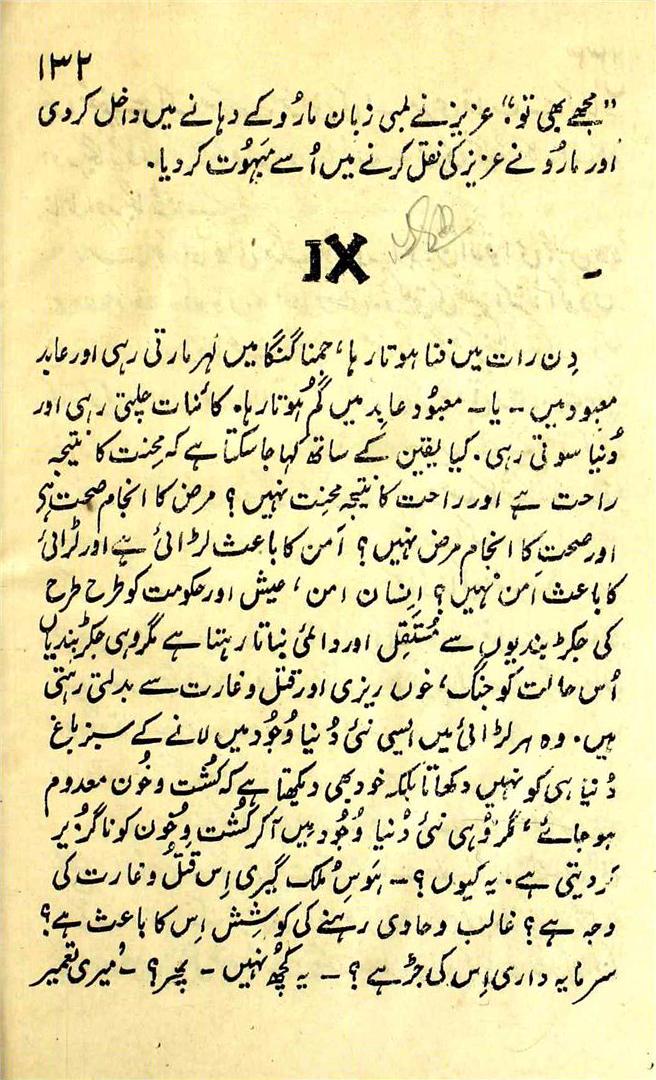 ۱۳۲
"مجھے بھی تو"؛ عزیز نے لمبی زبان مارُو کے دہانے میں داخل کردی
اور مارُو نے عزیز کی نقل کرنے میں اُسے مَبہُوت کردیا۔
IX
دِن رات میں فنا ہوتا رہا، جمنا گنگا میں لہر مارتی رہی اور عابد
معبود میں - یا - معبُود عابِد میں گم ہُوتا رہا۔ کائنات چلتی رہی اور
دُنیا سوتی رہی۔ کیا یقین کے ساتھ کہا جاسکتا ہے کہ مِحنت کا نتیجہ
راحت ہے اور راحت کا نتیجہ محِنت نہیں؟ مرض کا انجام صحت ہی
اور صحت کا انجام مرض نہیں؟ اَمن کا باعث لڑائی ہے اور لڑائی
کا باعث اَمن نہیں؟ اِنسان امن، عیش اور حکومت کو طرح طرح
کی جکڑ بندیوں سے مُستَقِل اور دائمی بناتا رہتا ہے مگر وہی جکڑ بندیاں
اُس حالت کو جنگ، خوں ریزی اور قتل و غارت سے بدلتی رہتی
ہیں۔ وہ ہر لڑائی میں ایسی نئی دُنیا وُجُود میں لانے کے سبز باغ
دُنیا ہی کو نہیں دکھاتا بلکہ خود بھی دیکھتا ہے کہ کُشت و خُون معدوم
ہو جائے، مگر وُہی نئی دُنیا وُجُود میں آکر کُشت و خُون کو ناگزُیر
کردیتی ہے۔ یہ کیوں؟ - ہَوسِ مُلک گیری اِس قتل و غارت کی
وجہ ہے؟ غالب و حاوی رہنے کی کوشِش اِس کا باعث ہے؟
سرمایہ داری اِس کی جڑ ہے؟ - یہ کچھ نہیں - پھر؟ - "میری تعمیر